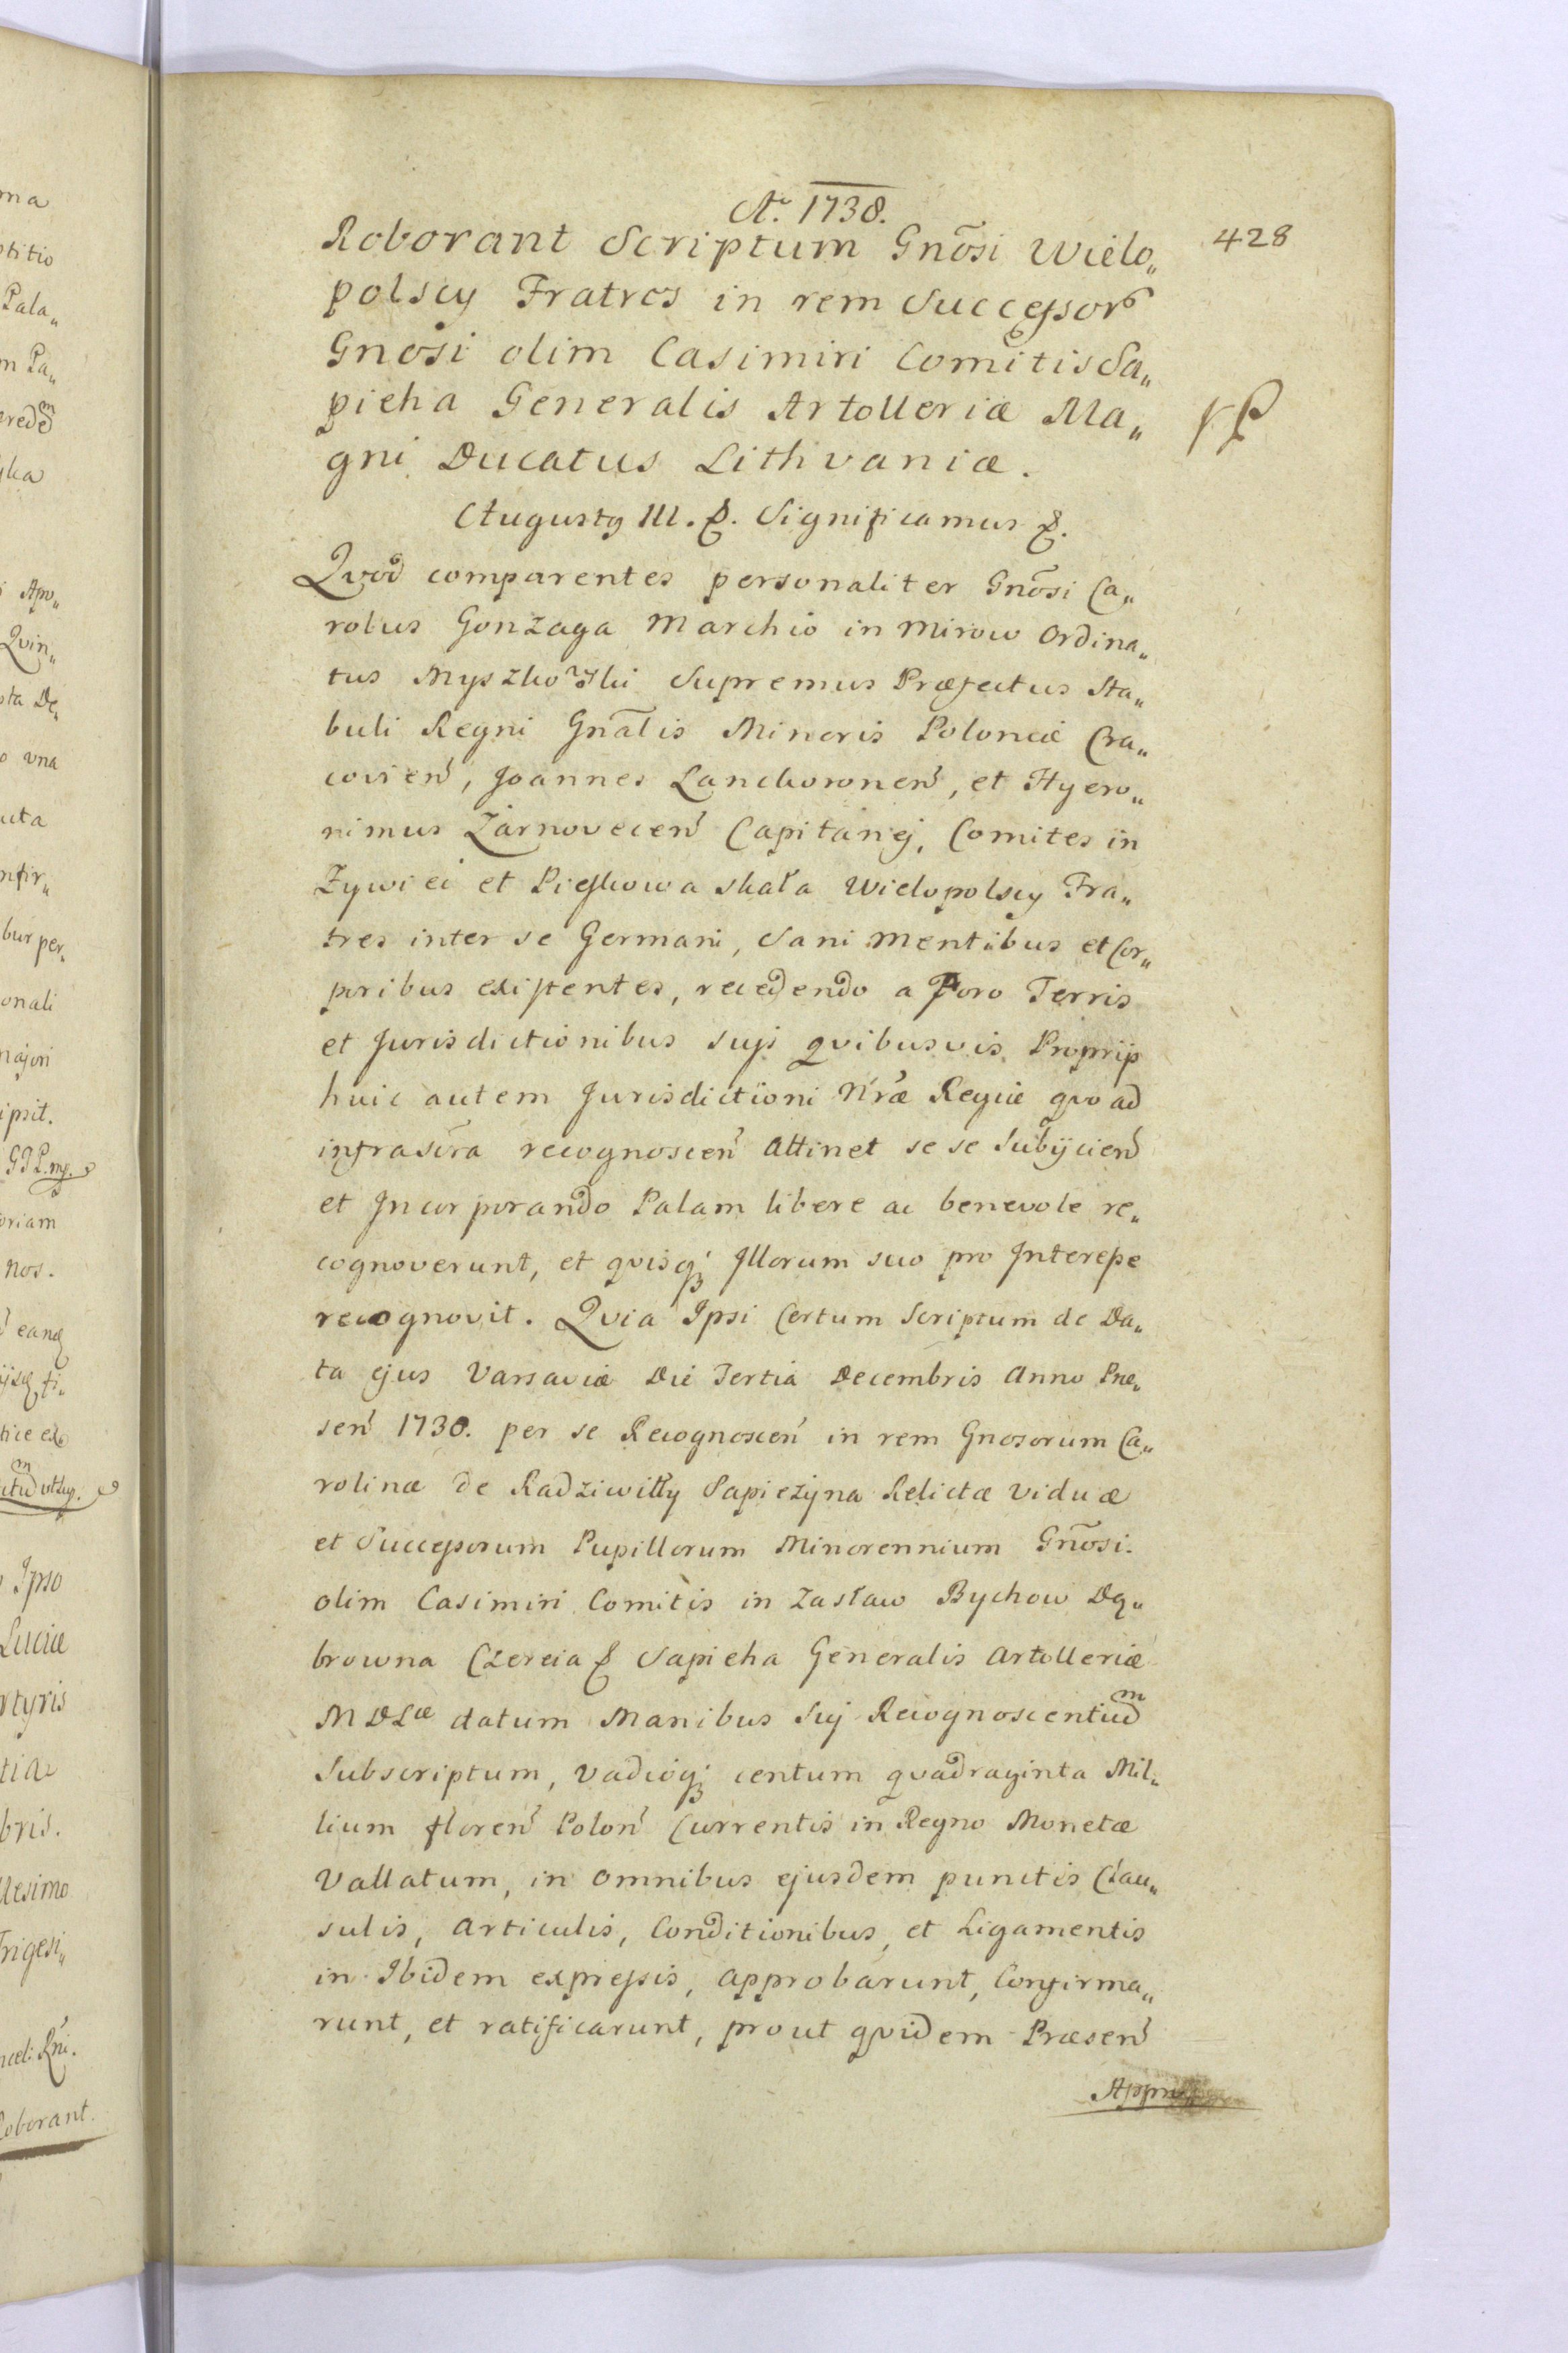 Aº 1738.
428
Roborant Scriptum Gnõsi Wielo„
polscy Fratres in rem Successor
Gnosi olim Casimiri Comitis Sa„
pieha Generalis Artolleriæ Ma„
gni Ducatus Lithvaniæ.
Augustq III. &. Significamus &.
Qvod comparentes personaliter Gnõsi Ca„
rolus Gonzaga Marchio in Mirow Ordina„
tus Myszkowski Supremus Præfectus Sta„
buli Regni Gnãlis Minoris Poloniæ Cra„
covien̄, Joannes Lanckoronen̄, et Hyero„
nimus Żarnovecen̄ Capitanej, Comites in
Zywiec et Pieskowa skała Wielopolscy Fra„
tres inter se Germani, Sani Mentibus et Cor„
poribus existentes, recedendo a Foro Terris
et Jurisdictionibus suys qvibusvis Proprijs
huic autem Jurisdictioni Nræ Regiæ qvo ad
infrascra recognoscen̄ Attinet se se Subijcien̄
et Incorporando Palam libere ac benevole re„
cognoverunt, et qvisq; Illorum suo pro Interesse
recognovit. Qvia Ipsi Certum Scriptum de Da„
ta ejus Varsaviæ Die Tertia Decembris Anno Præ„
sen̄ 1738. per se Recognoscen̄ in rem Gnosorum Ca„
rolinæ de Radziwiłły Sapiezyna Relictæ Viduæ
et Successorum Pupillorum Minorennium Gnõsi
olim Casimiri Comitis in Zasław Bychow Dą„
browna Czereia & Sapieha Generalis Artolleriæ
MDLæ datum Manibus Suj Recognoscentiũm
Subscriptum, Vadioq; centum qvadraginta Mil„
lium floren̄ Polon̄ Currentis in Regno Monetæ
Vallatum, in omnibus ejusdem punctis Clau„
sulis, Articulis, Conditionibus, et Ligamentis
in Ibidem expressis, Approbarunt, Confirma„
runt, et ratificarunt, prout qvidem Præsen̄